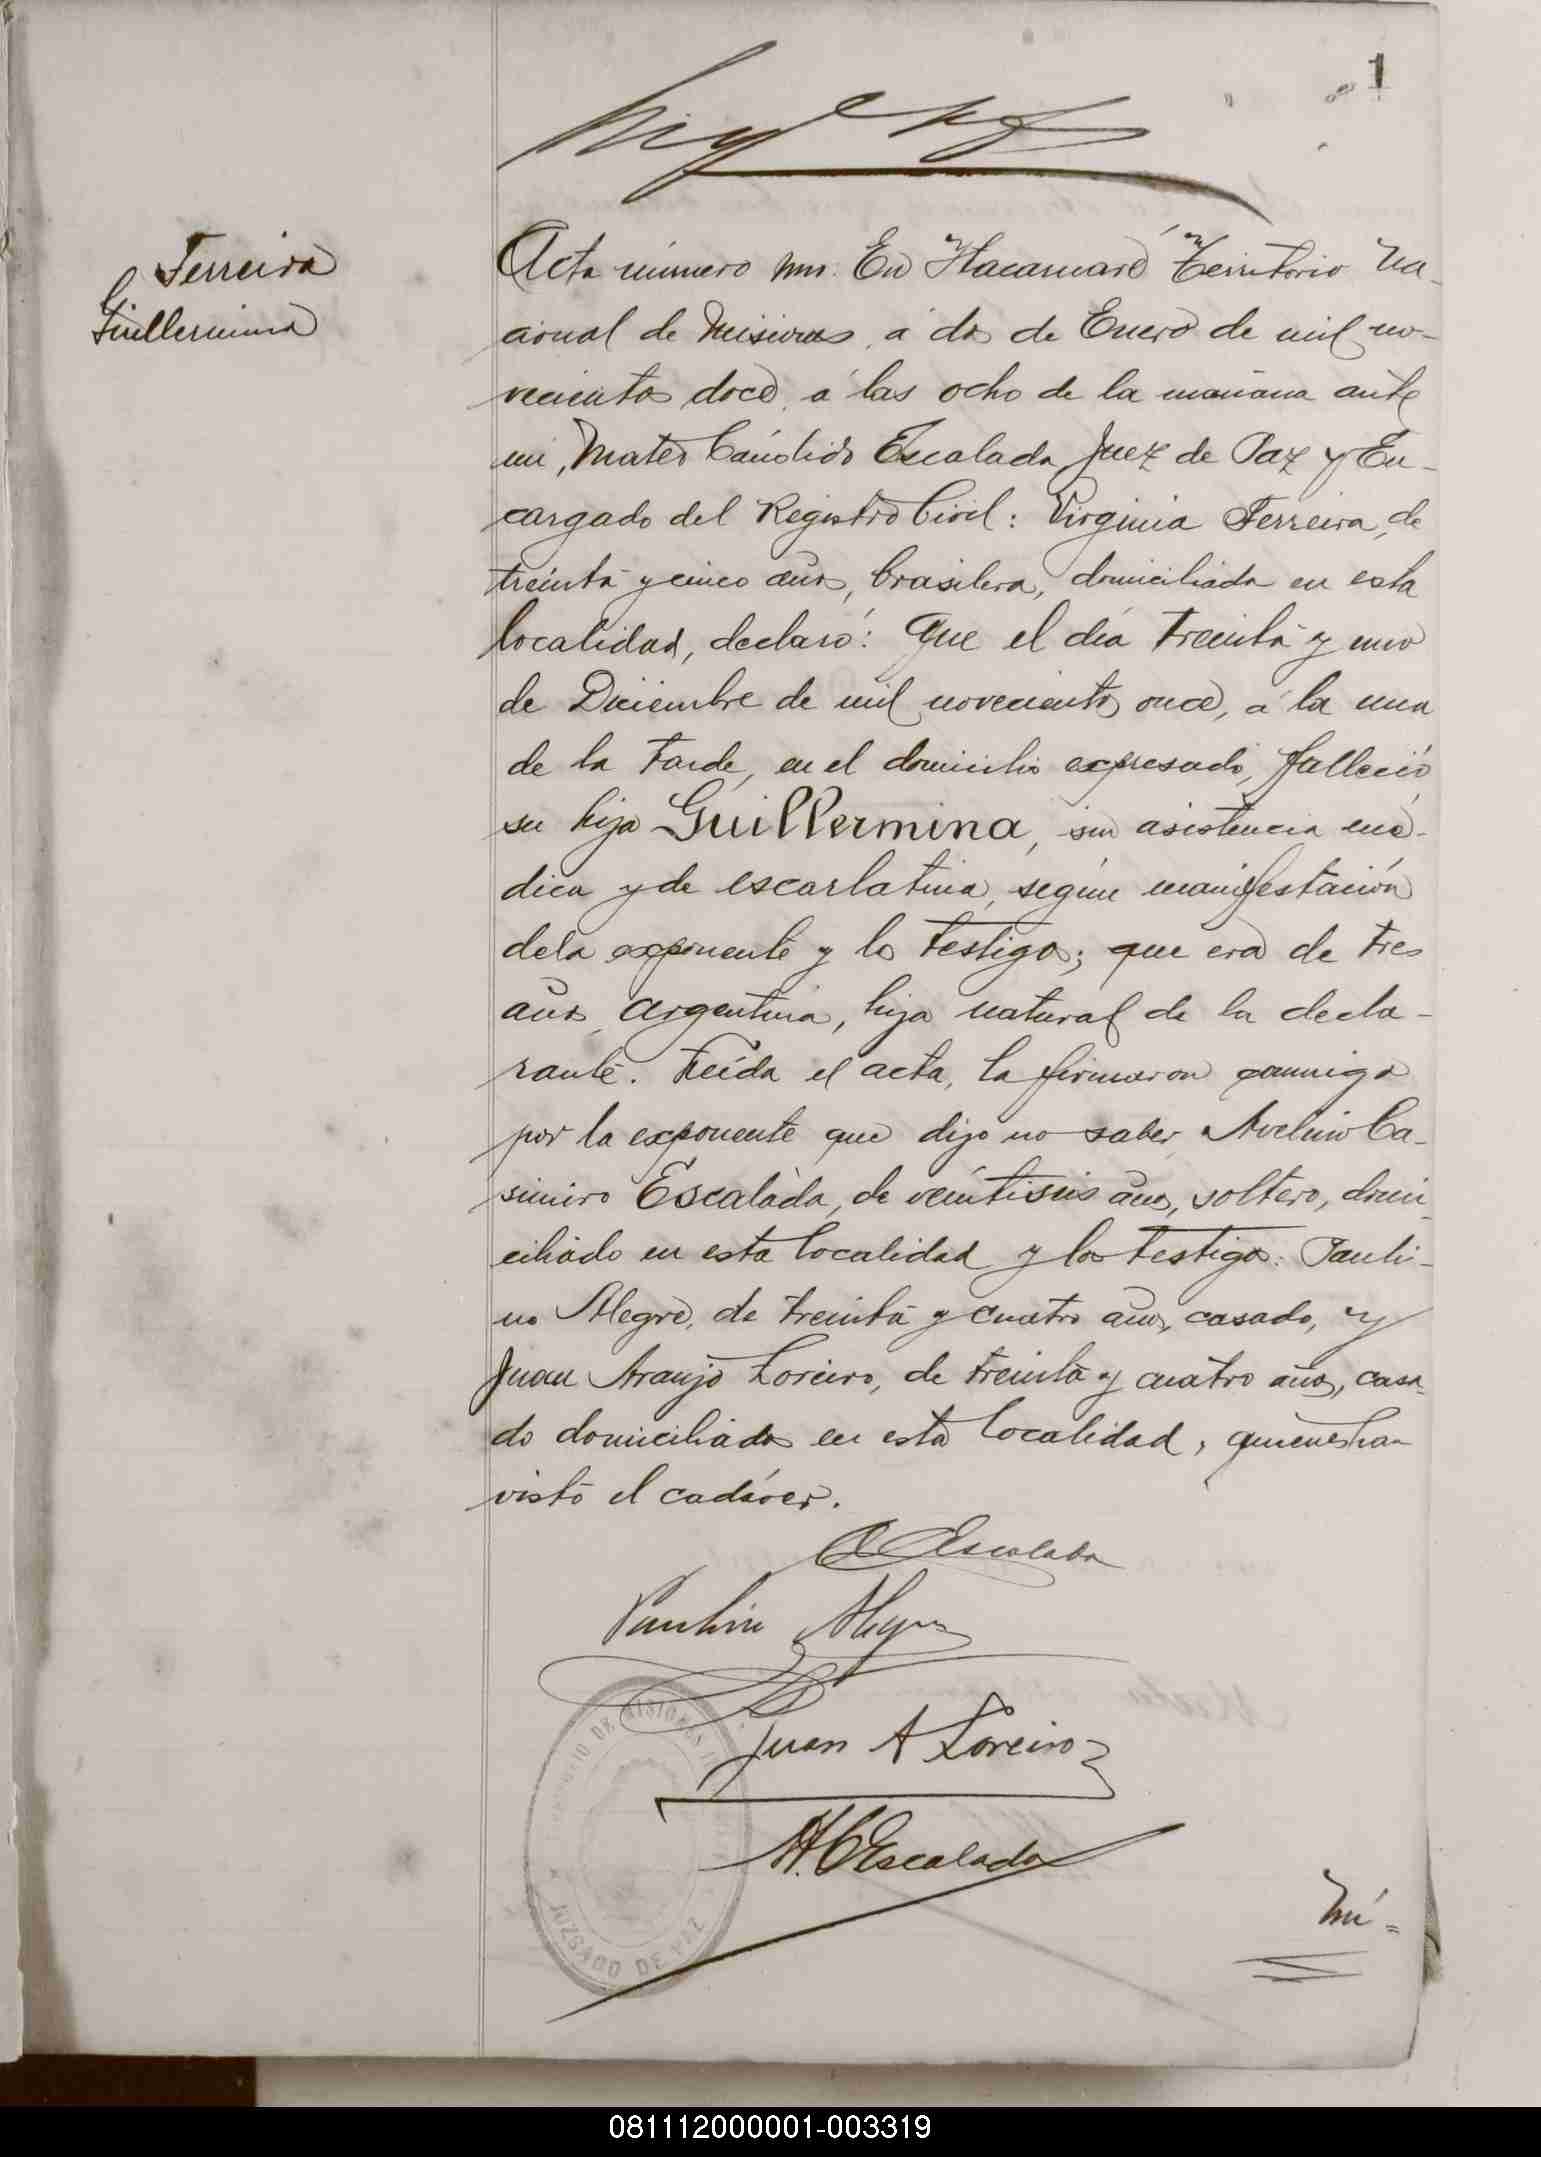 1
Ferreira
Guillermina
Acta número uno. En Itacaruaré Territorio Na-
cional de Misiones, á dos de Enero de mil no-
vecientos doce, á las ocho de la mañana ante
mí, Mateo Cándido Escalada Juez de Paz y En-
cargado del Registro Civil: Virginia Ferreira, de
treinta y cinco años, brasilera, domiciliada en esta
localidad, declaró: Que el día treinta y uno
de Diciembre de mil novecientos once, á la una
de la tarde, en el domicilio expresado, falleció
su hija Guillermina, sin asistencia mé-
dica y de escarlatina, según manifestación
de la exponente y los testigos; que era de tres
años, argentina, hija natural de la decla-
rante. Leída el acta, la firmaron conmigo
por la exponente que dijo no saber, Avelino Ca-
simiro Escalada, de veintiseis años, soltero, domi-
ciliado en esta localidad y los testigos: Pauli-
no Alegre, de treinta y cuatro años, casado, y
Juan Araujo Loreiro, de treinta y cuatro años, casa-
do domiciliados en esta localidad, quienes han
visto el cadáver.
Escalada
Paulino Alegre
Juan A Loreiro
M. C Escalada
JUZGADO DE PAZ
Nú=
081112000001-003319